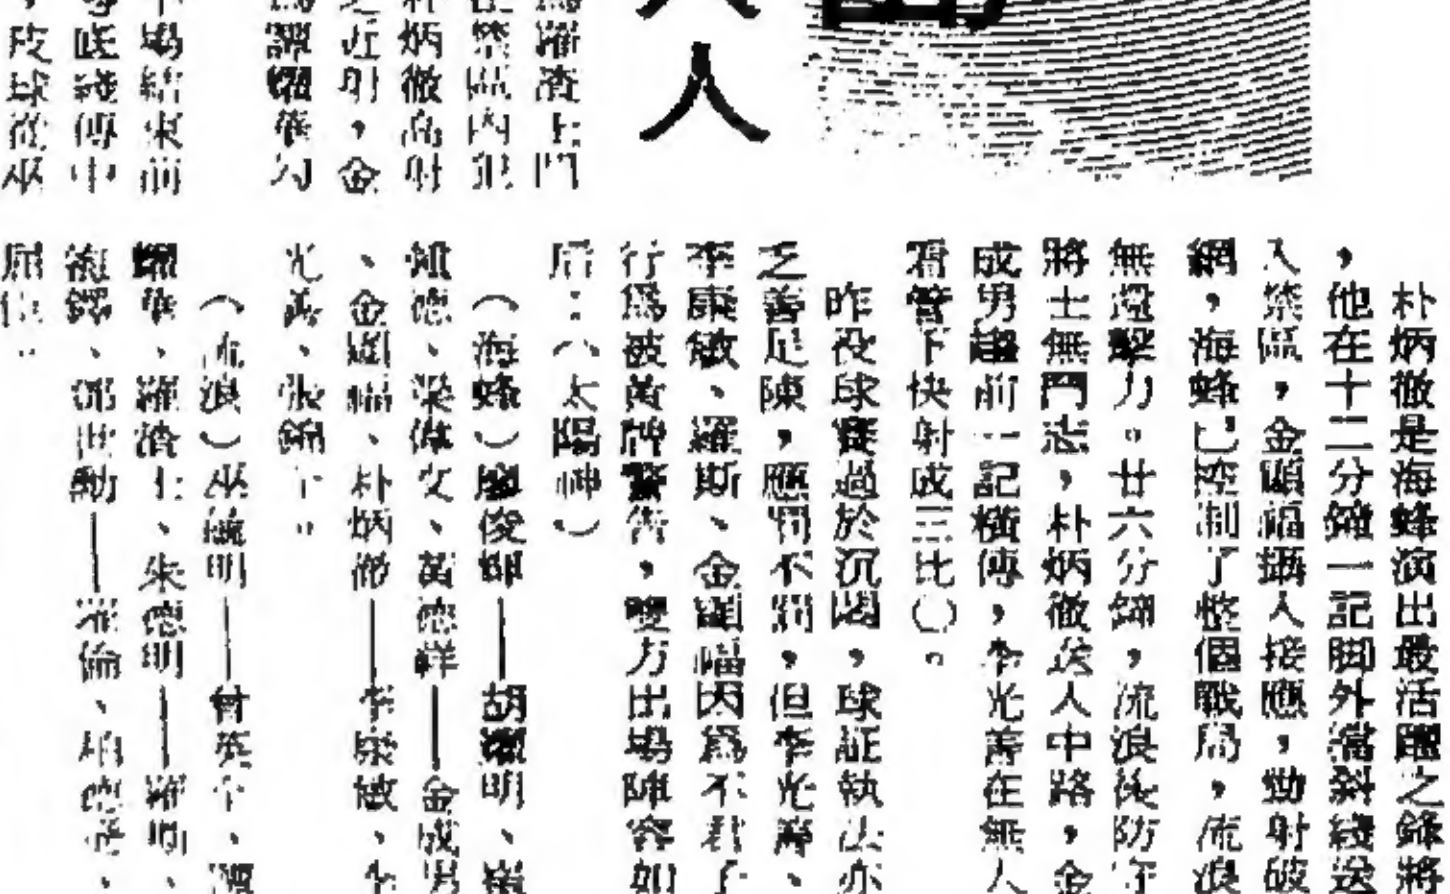 人
朴炳徹是海蜂演出最活躍之鋒將
，他在十二分鐘一記脚外檔斜綫送
入禁區，金顯福插入接應，勁射破
網，海蜂已控制了整個戰局，流浪
無還擊力。廿六分鐘，流浪後防守
將士無鬥志，朴炳徹送入中路，金
成男趕前一記橫傳，李光善在無人
看管下快射成三比〇。
昨役球賽過於沉悶，球証執法亦
乏善足陳，應罰不罰，但李光善、
李康敏、羅斯、金顯福因爲不君子
行爲被黃牌警告，雙方出場陣容如
后：（太陽神）
（海蜂）廖俊輝——胡耀明、
德、梁偉文、黃德祥——金成男
、金顯福、朴炳徹——李康敏、李
光善、張錦
（流浪）巫繼明——曾英
耀華、羅渣士、朱德明——羅斯、
鐸、鄧世勳——羅倫、柏德
屈臣。
羅渣士門
禁區內混
朴炳徹高射
之近射，金
譚耀華勾
場結束前
底綫傳中
，皮球從巫